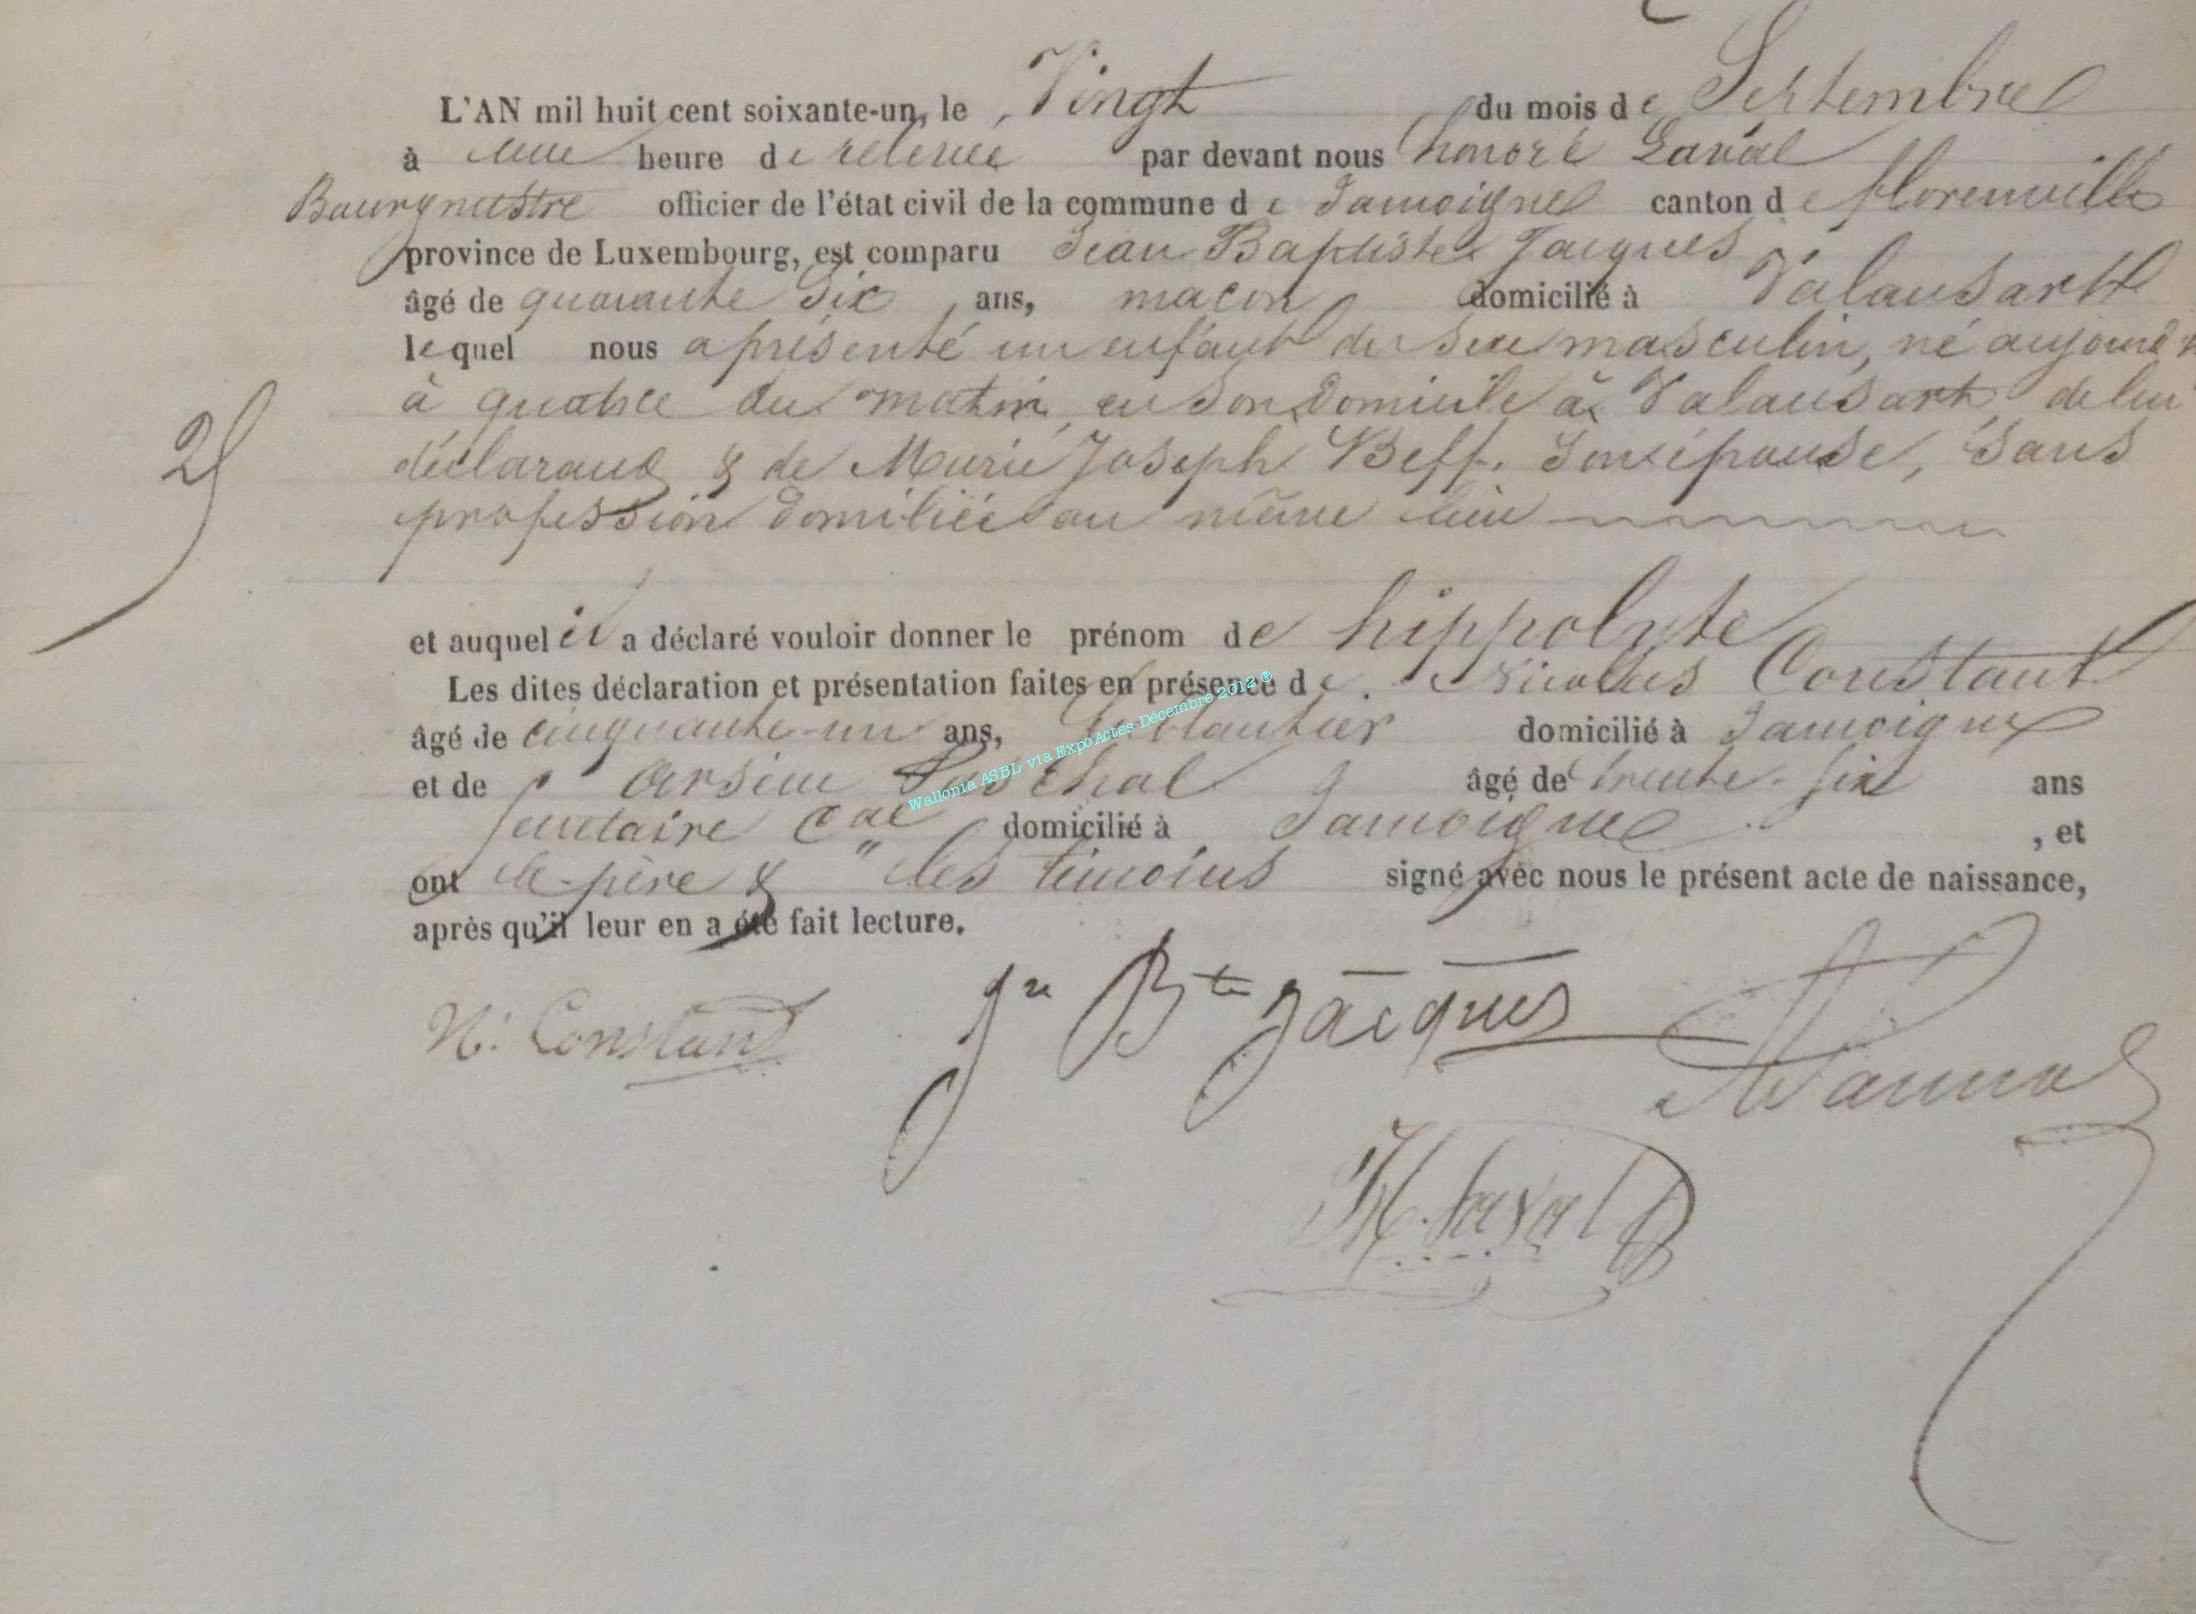 L'AN mil huit cent soixante-un, le Vingt du mois de Septembre
à une heure de relevée par devant nous honoré Laval
Bourgmestre officier de l'état civil de la commune de Jamoigne canton de florenville
province de Luxembourg, est comparu Jean Baptiste Jacques
âgé de quarante Six ans, maçon domicilié à Valansart
lequel nous a présenté un enfant du sexe masculin, né aujourd'h
à quatre du matin, en son Domicile à Valansart, de lui
25
déclarant & de Marie Joseph Beff. Son épouse, Sans
profession domiliée au même lieu
et auquel il a déclaré vouloir donner le prénom de hippolyte
Les dites déclaration et présentation faites en présence de Nicolas Constant
âgé de cinquante-un ans, domicilié à Jamoigne
et de Arsène âgé de trente-six ans
Wallonia ASBL via ExpoActes Décembre 2012 ®
domicilié à Jamoigne, et
ont le père & les témoins signé avec nous le présent acte de naissance,
après qu'il leur en a été fait lecture.
N. Constant Jn Bte Jacques
H. Laval